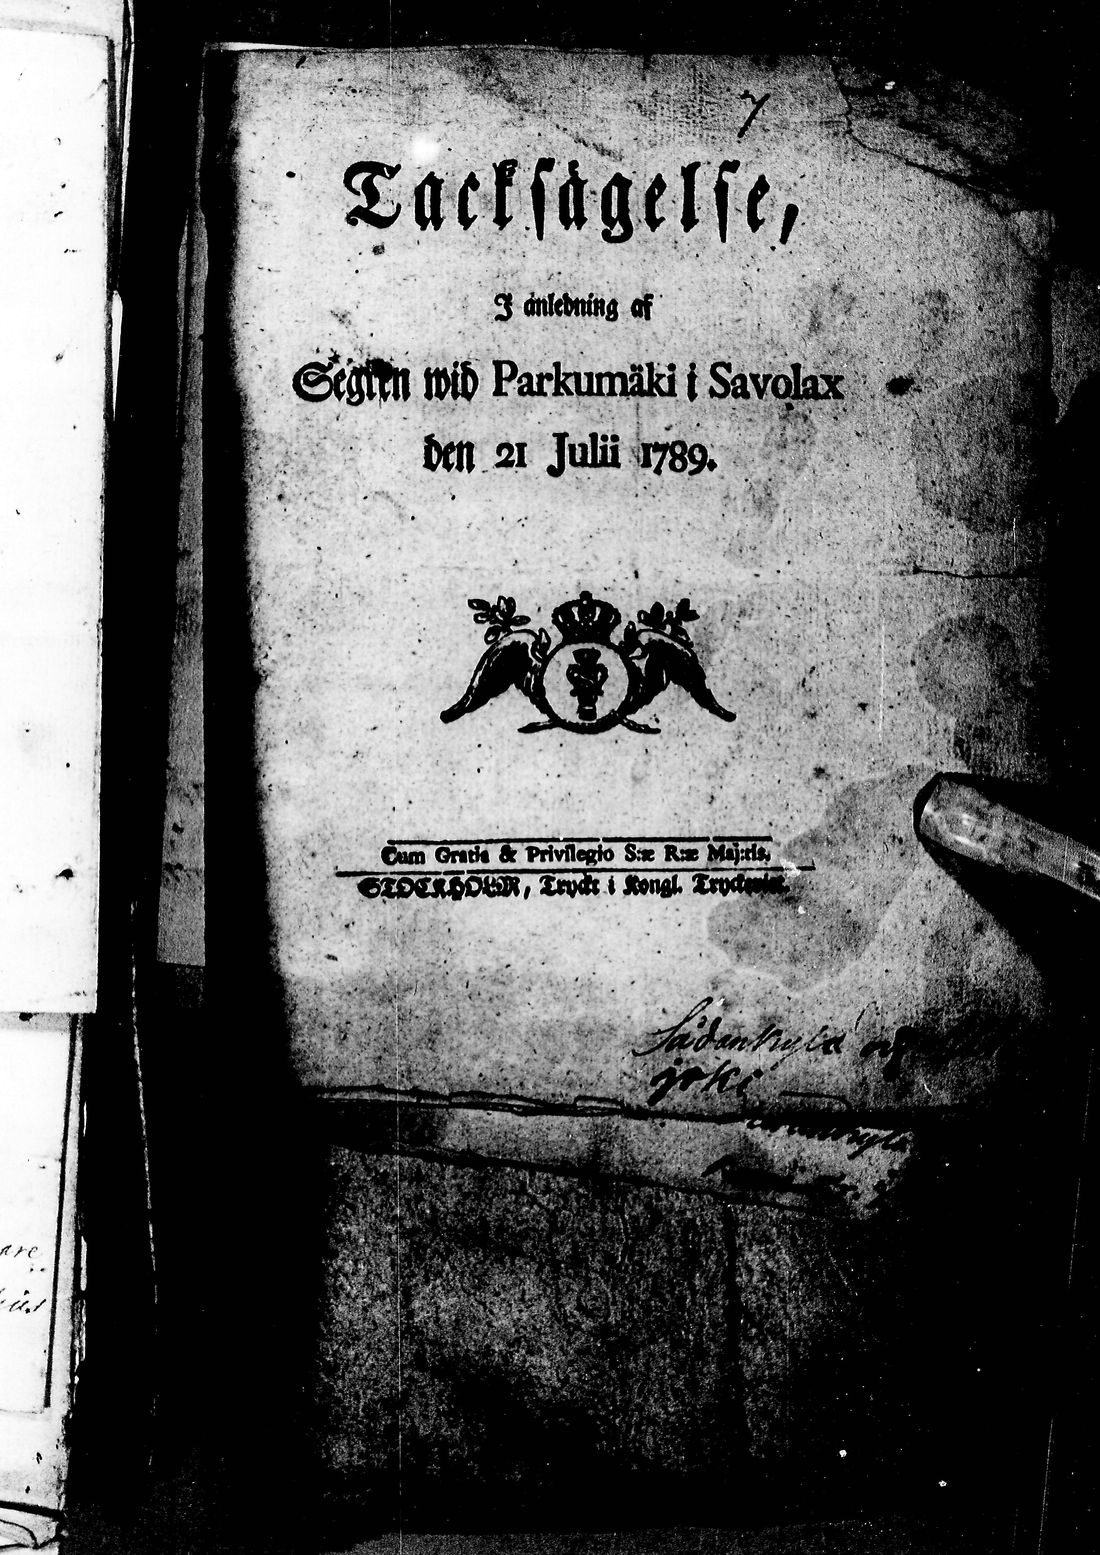 7
Tacksägelse,
I anledning af
Segren wid Parkumäki i Savolax
den 21 Julii 1789.
Cum Gratia & Privilegio S:æ R:æ Maj:tis.
STOCKHOLM, Tryckt i Kongl. Tryckeriet.
Sådankylä och
joki
are